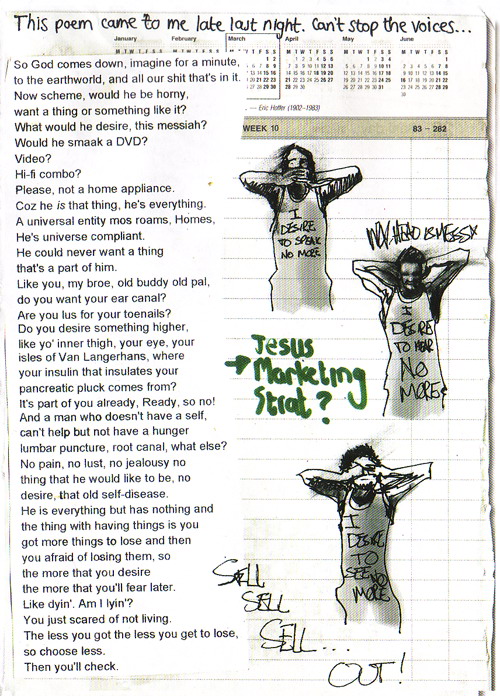 This poem came to me late last night. Can't stop the voices...
January February March April May June
So God comes down, imagine for a minute,
to the earthworld, and all our shit that's in it.
Now scheme, would he be horny,
want a thing or something like it?
What would he desire, this messiah?
Would he smaak a DVD?
Video?
Hi-fi combo?
Please, not a home appliance.
Coz he is that thing, he's everything.
A universal entity mos roams, Homes,
He's universe compliant.
He could never want a thing
that's a part of him.
Like you, my broe, old buddy old pal,
do you want your ear canal?
Are you lus for your toenails?
Do you desire something higher,
like yo' inner thigh, your eye, your
isles of Van Langerhans, where
your insulin that insulates your
pancreatic pluck comes from?
It's part of you already, Ready, so no!
And a man who doesn't have a self,
can't help but not have a hunger
lumbar puncture, root canal, what else?
No pain, no lust, no jealousy no
thing that he would like to be, no
desire, that old self-disease.
He is everything but has nothing and
the thing with having things is you
got more things to lose and then
you afraid of losing them, so
the more that you desire
the more that you'll fear later.
Like dyin'. Am I lyin'?
You just scared of not living.
The less you got the less you get to lose,
so choose less.
Then you'll check.
— Eric Hoffer (1902–1983)
WEEK 10 83 – 282
I
DESIRE
TO SPEAK
NO MORE
MY HEAD IS MESSY
I
DESIRE
TO HEAR
NO
MORE
Jesus
Marketing
Strat?
I
DESIRE
TO
SEE NO
MORE
SELL
SELL
SELL...
OUT!